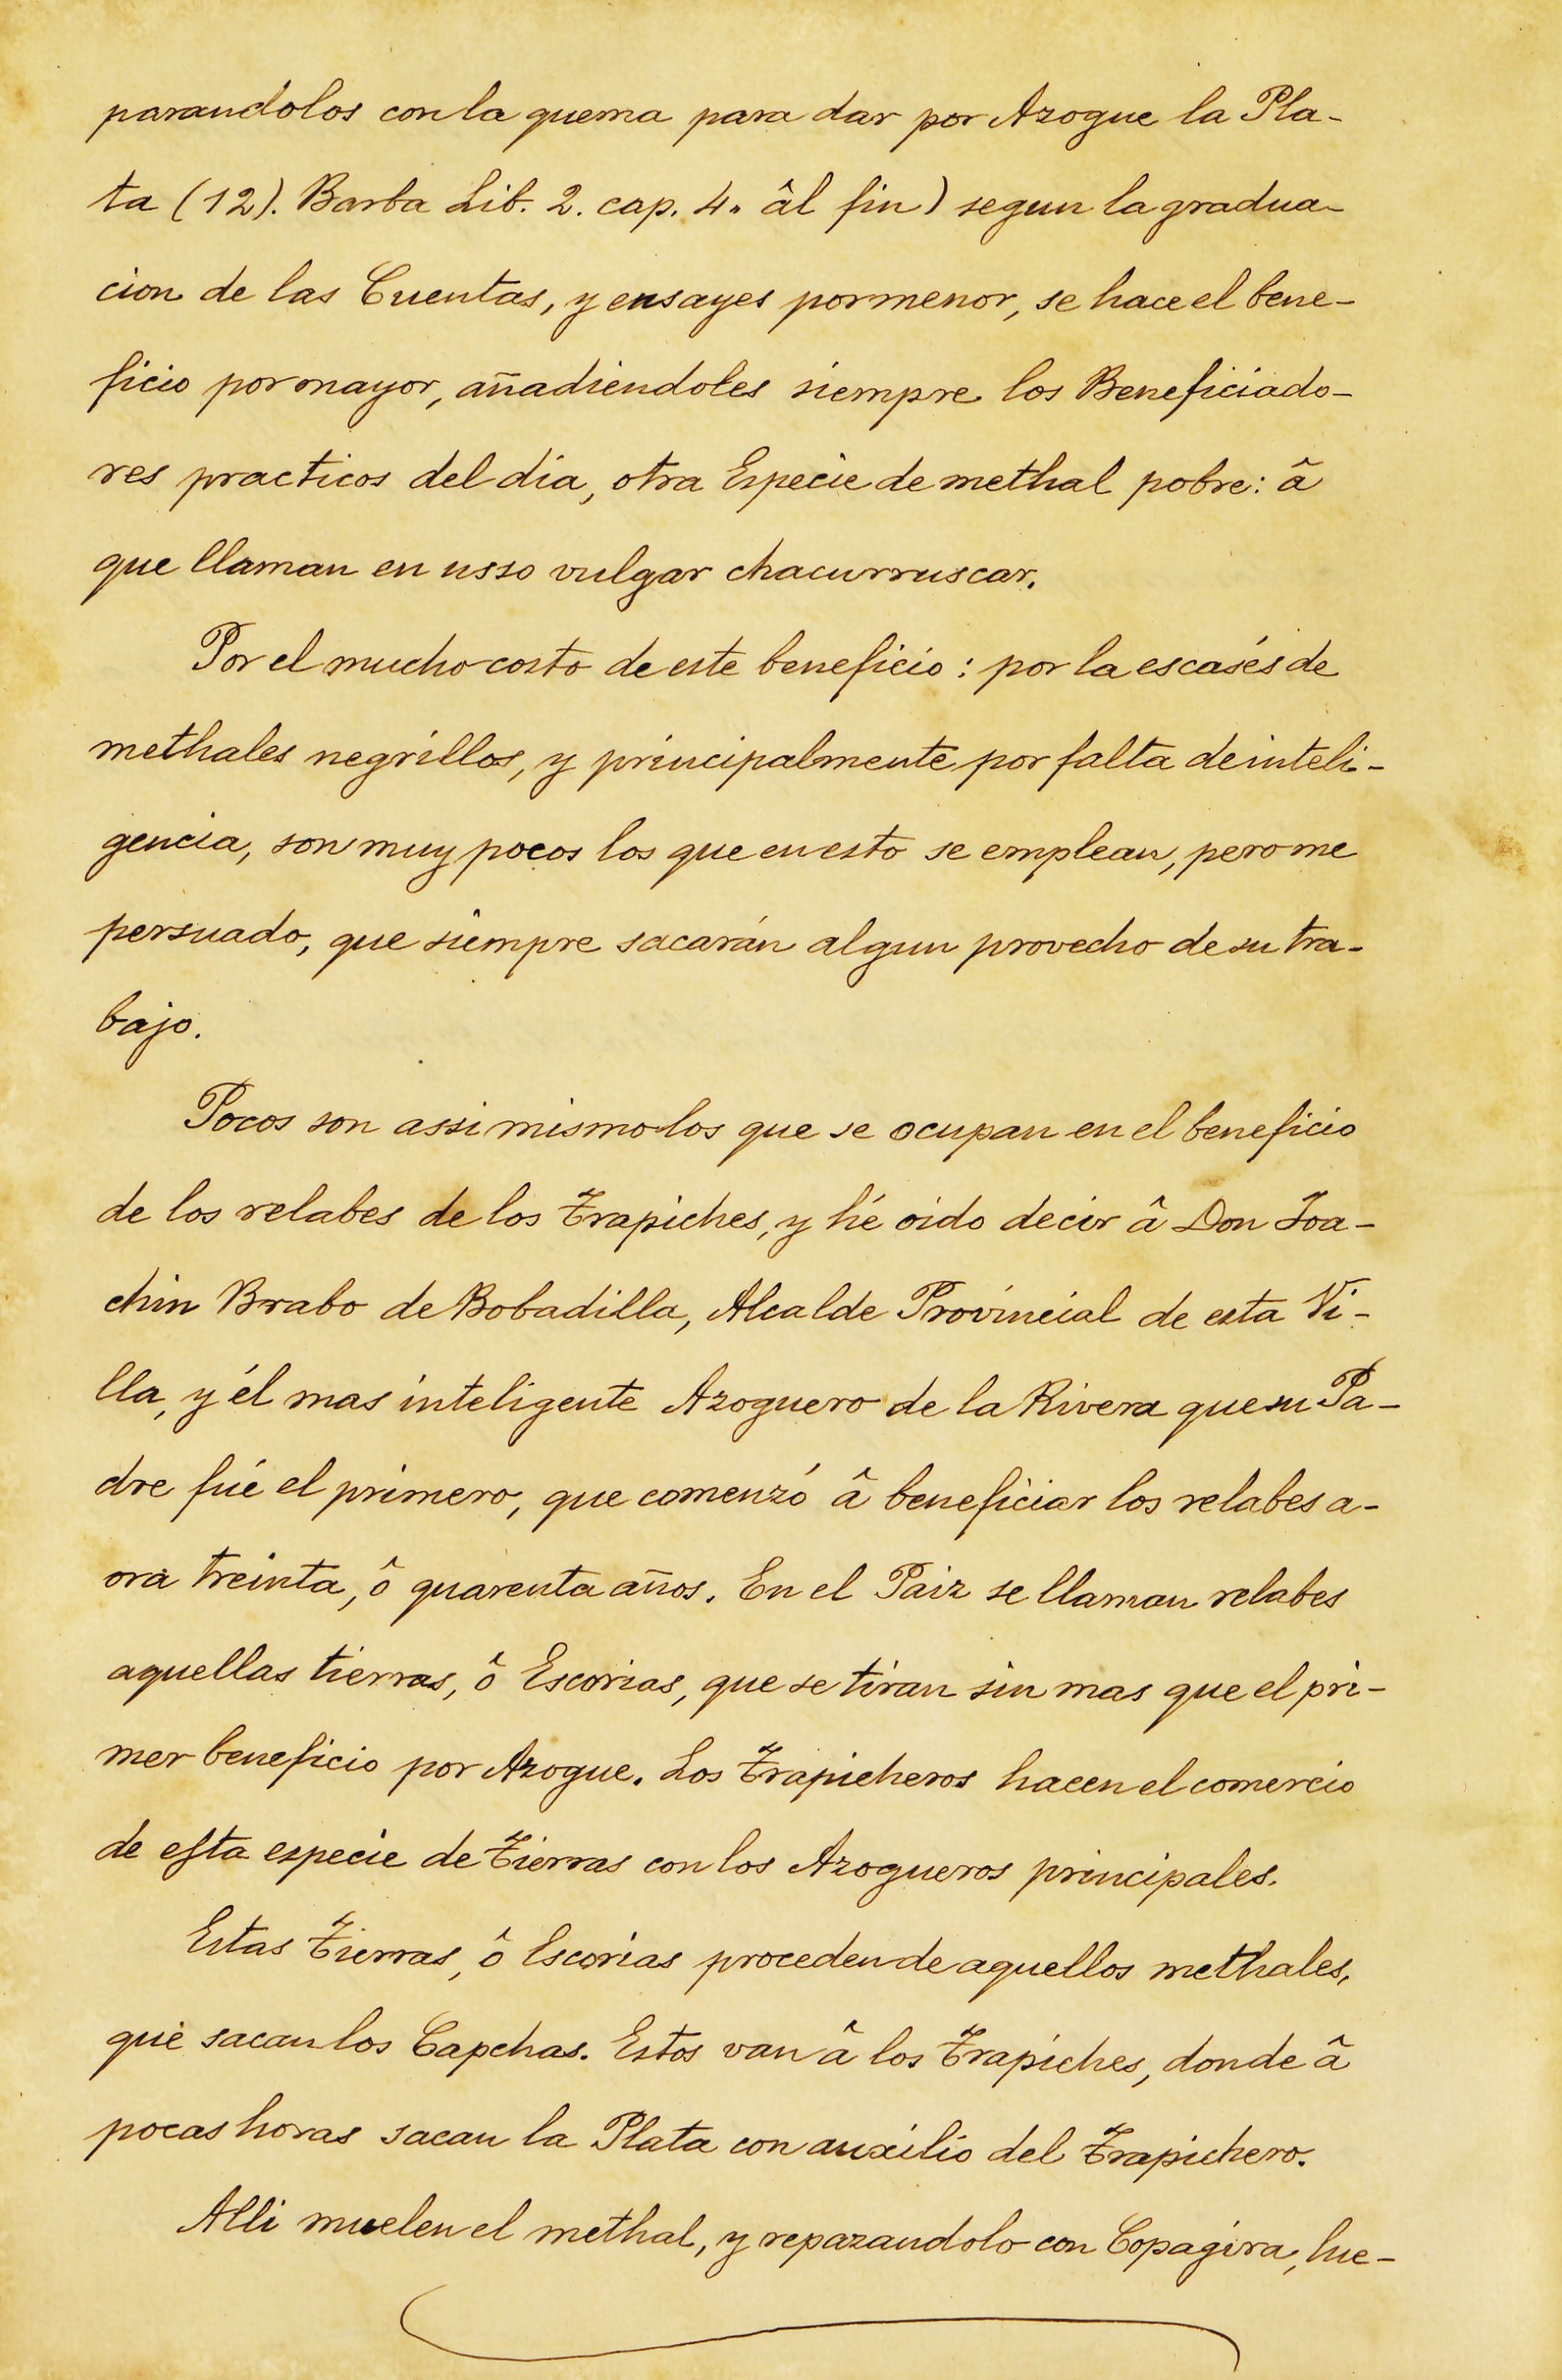 parandolos con la quema para dar por Azogue la Pla-
ta (12). Barba Lib. 2. cap. 4. âl fin) segun la gradua-
cion de las Cuentas, y ensayes pormenor, se hace el bene-
ficio por mayor, añadiendoles siempre los Beneficiado-
res practicos del dia, otra Especie de methal pobre: â
que llaman en usso vulgar chacurruscar.
Por el mucho costo de este beneficio: por la escasés de
methales negrillos, y principalmente por falta de inteli-
gencia, son muy pocos los que en esto se emplean, pero me
persuado, que siempre sacarán algun provecho de su tra-
bajo.
Pocos son assi mismo los que se ocupan en el beneficio
de los relabes de los Trapiches, y hé oido decir â Don Joa-
chin Brabo de Bobadilla, Alcalde Provincial de esta Vi-
lla, y él mas inteligente Azoguero de la Rivera que su Pa-
dre fué el primero, que comenzó â beneficiar los relabes a-
ora treinta, ô quarenta años. En el Paiz se llaman relabes
aquellas tierras, ô Escorias, que se tiran sin mas que el pri-
mer beneficio por Azogue. Los Trapicheros hacen el comercio
de esta especie de Tierras con los Azogueros principales.
Estas Tierras, ô Escorias proceden de aquellos methales,
que sacan los Capchas. Estos van â los Trapiches, donde â
pocas horas sacan la Plata con auxilio del Trapichero.
Alli muelen el methal, y repazandolo con Copagira, lue-